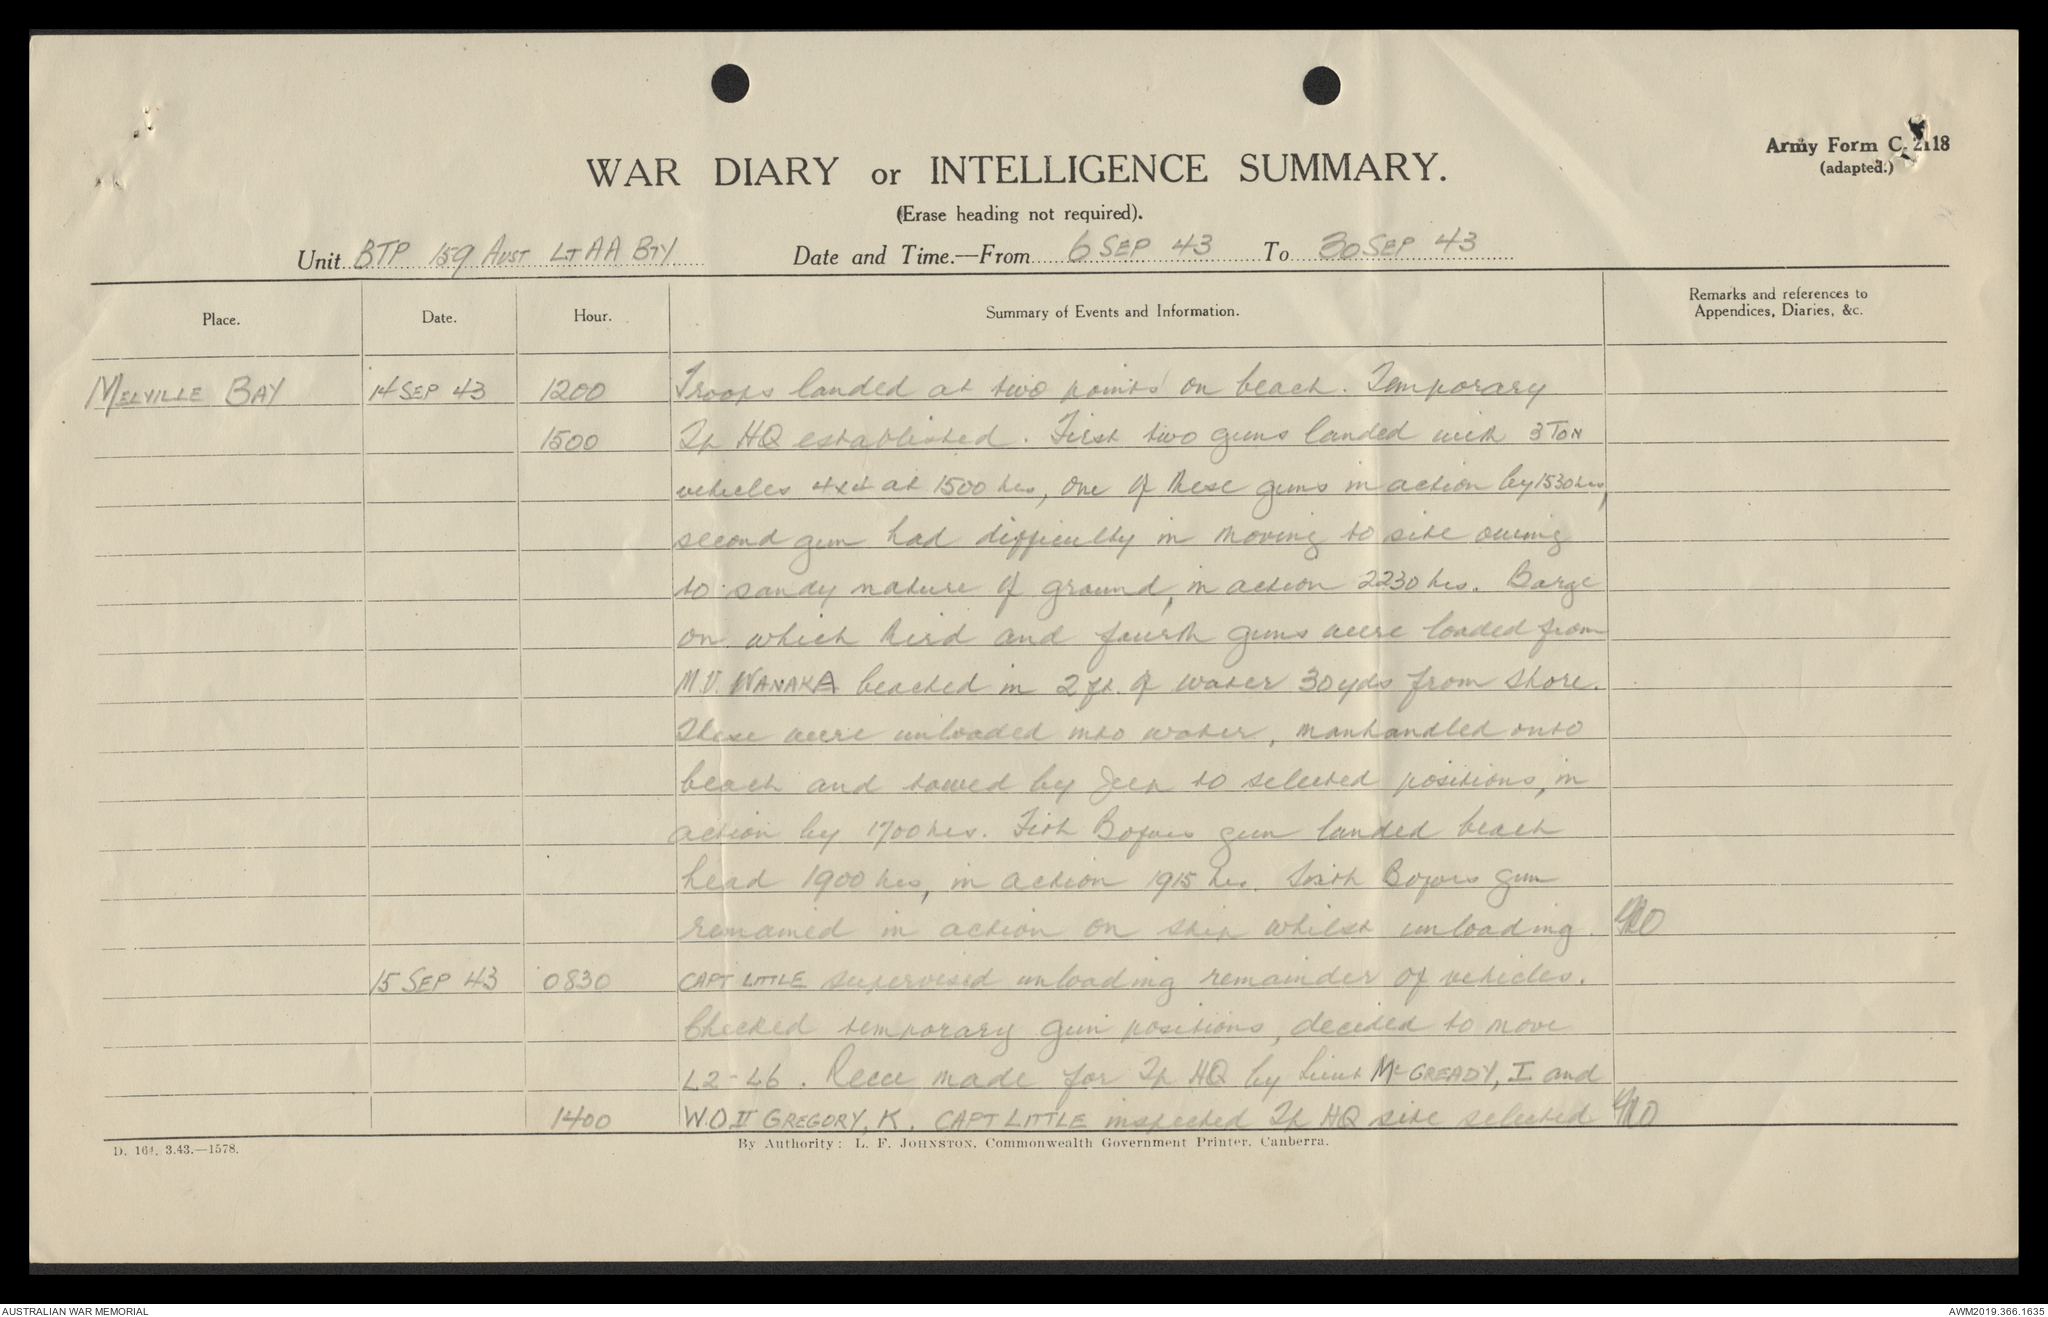 Army Form C. 2118
(adapted.)
WAR DIARY or INTELLIGENCE SUMMARY.
(Erase heading not required).
Unit BTP 159 AUST LT AA BTY Date and Time.—From 6 SEP 43 To 30 SEP 43
Place. Date. Hour. Summary of Events and Information. Remarks and references to
Appendices, Diaries, &c.
MELVILLE BAY 14 SEP 43 1200 Troops landed at two points on beach. Temporary
1500 Tp HQ established. First two guns landed with 3 TON
vehicles 4x4 at 1500 hrs, one of these guns in action by 1530 hrs,
second gun had difficulty in moving to site owing
to sandy nature of ground, in action 2230 hrs. Barge
on which third and fourth guns were loaded from
M.V. WANAKA beached in 2 ft. of water 30 yds from shore.
These were unloaded into water, manhandled onto
beach and towed by Jeep to selected positions, in
action by 1700 hrs. Fith Bofors gun landed beach
head 1900 hrs, in action 1915 hrs. Sixth Bofors gun
remained in action on ship whilst unloading.
15 SEP 43 0830 CAPT LITTLE supervised unloading remainder of vehicles.
Checked temporary gun positions, decided to move
L2-L6. Recce made for Tp HQ by Lieut McGREADY, I and
1400 W.O.II GREGORY, K. CAPT LITTLE inspected Tp HQ site selected
D. 161. 3.43.—1578. By Authority: L. F. JOHNSTON, Commonwealth Government Printer, Canberra.
AUSTRALIAN WAR MEMORIAL AWM2019.366.1635